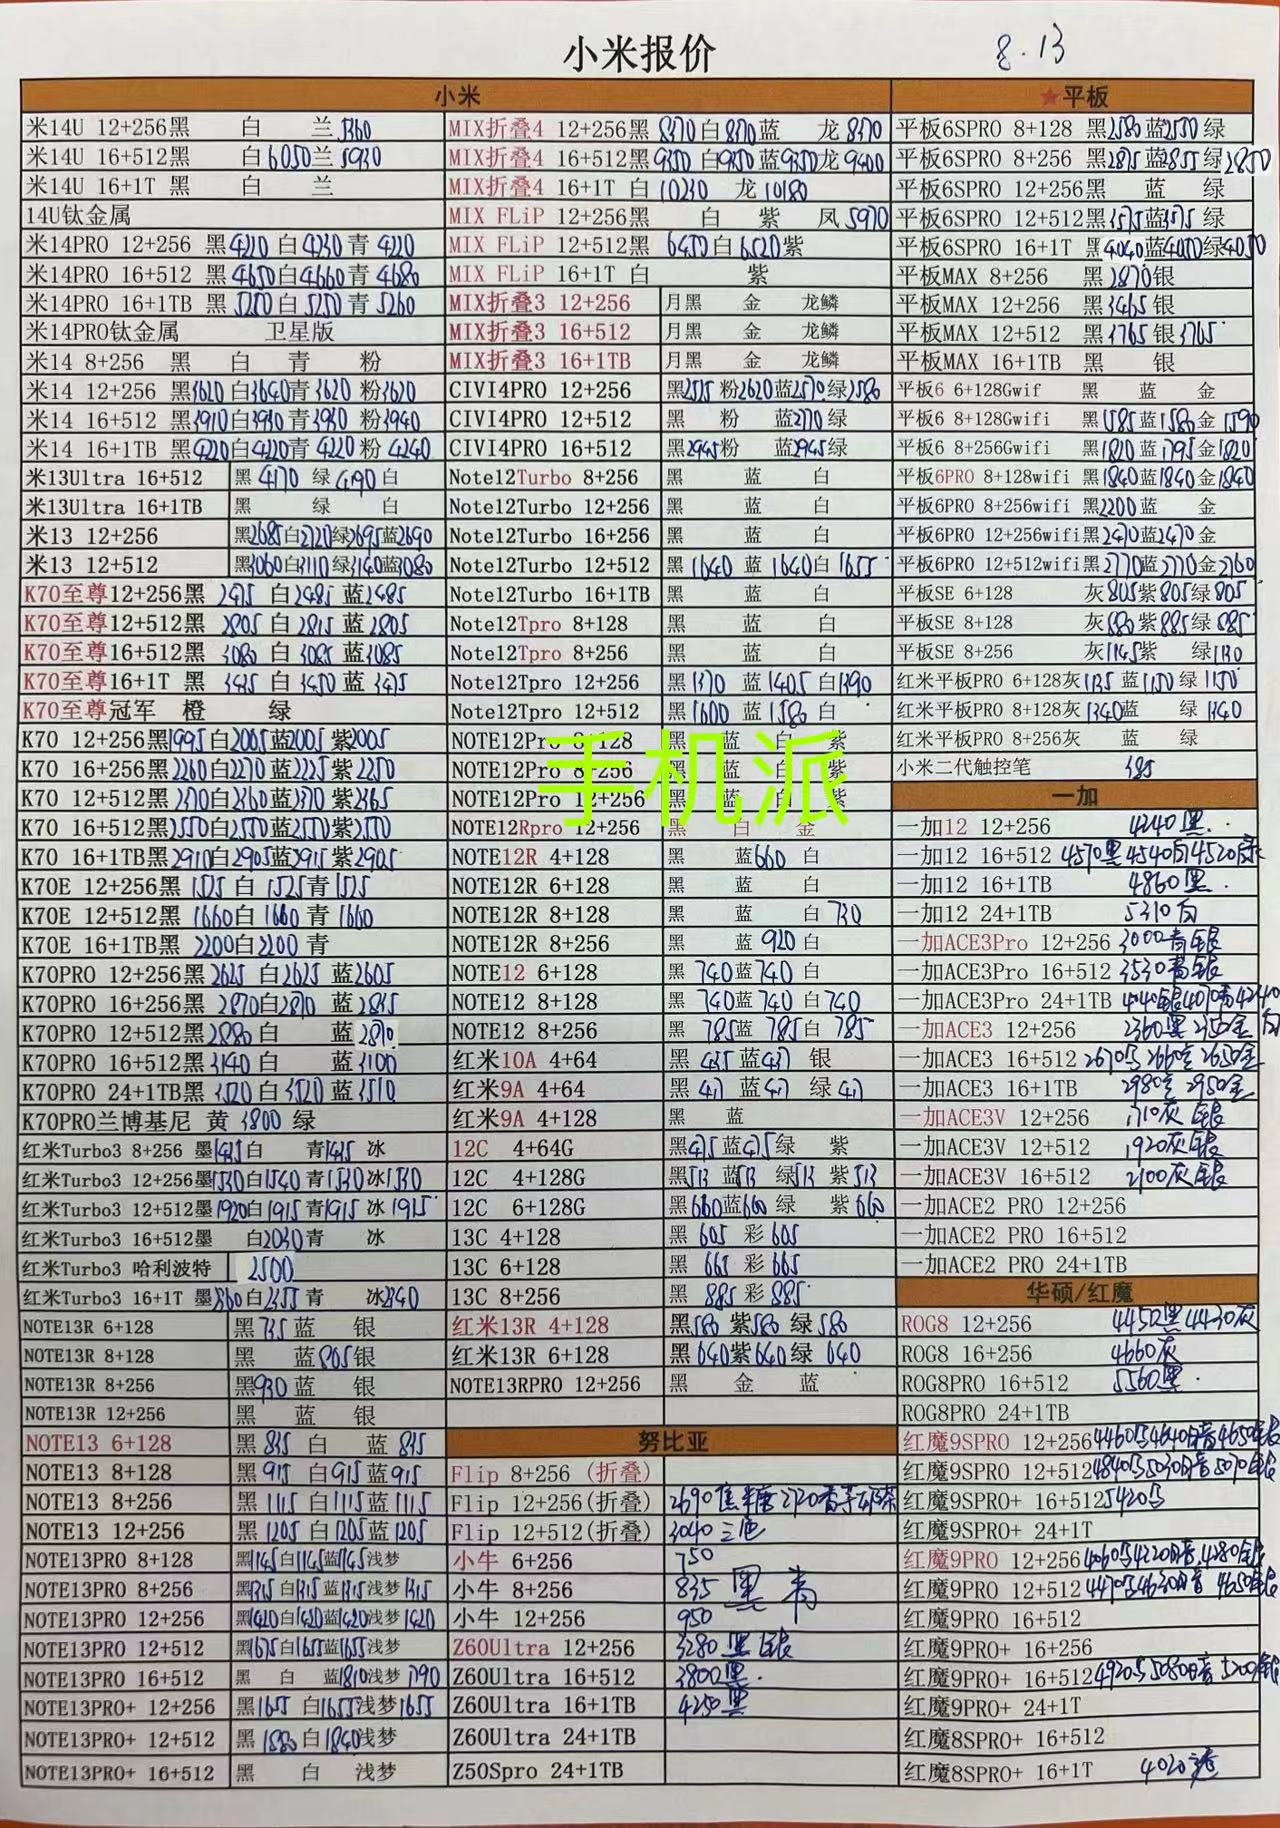 小米报价 8.13
小米
米14U 12+256黑 白 兰5360
米14U 16+512黑 白6050兰5930
米14U 16+1T 黑 白 兰
14U钛金属
米14PRO 12+256 黑4220白4230青4220
米14PRO 16+512 黑4650白4660青4680
米14PRO 16+1TB 黑5250白5250青5260
米14PRO钛金属 卫星版
米14 8+256 黑 白 青 粉
米14 12+256 黑3620白3640青3620粉3620
米14 16+512 黑3910白3930青3930粉3940
米14 16+1TB 黑4220白4220青4220粉4240
米13Ultra 16+512 黑4170 绿4190白
米13Ultra 16+1TB 黑 绿 白
米13 12+256 黑2685白2720绿2695蓝2690
米13 12+512 黑3060白3110绿3140蓝3080
K70至尊12+256黑 2475 白2485蓝2485
K70至尊12+512黑 2805 白2815蓝2805
K70至尊16+512黑 3080 白3085蓝3085
K70至尊16+1T 黑 3435 白3450蓝3475
K70至尊冠军 橙 绿
K70 12+256黑1995白2005蓝2005紫2005
K70 16+256黑2260白2270蓝2225紫2250
K70 12+512黑2370白2360蓝2370紫2365
K70 16+512黑2550白2550蓝2550紫2550
K70 16+1TB黑2910白2905蓝2915紫2905
K70E 12+256黑 1525白1525青1525
K70E 12+512黑 1660白1660青1660
K70E 16+1TB黑 2200白2200青
K70PRO 12+256黑2625 白2625蓝2605
K70PRO 16+256黑2870白2870蓝2835
K70PRO 12+512黑2880白 蓝2870
K70PRO 16+512黑3140白 蓝3100
K70PRO 24+1TB黑3520白3520蓝3510
K70PRO兰博基尼 黄3800绿
红米Turbo3 8+256 墨1435白 青1435冰
红米Turbo3 12+256墨1530白1540青1530冰1530
红米Turbo3 12+512墨1920白1915青1915冰1915
红米Turbo3 16+512墨 白2030青 冰
红米Turbo3 哈利波特 2500
红米Turbo3 16+1T 墨2360白2355青 冰2340
NOTE13R 6+128 黑735蓝 银
NOTE13R 8+128 黑 蓝805银
NOTE13R 8+256 黑930蓝 银
NOTE13R 12+256 黑 蓝 银
NOTE13 6+128 黑835白 蓝835
NOTE13 8+128 黑915 白915蓝915
NOTE13 8+256 黑1115白1115蓝1115
NOTE13 12+256 黑1205白1205蓝1205
NOTE13PRO 8+128 黑1145白1145蓝1145浅梦
NOTE13PRO 8+256 黑1315白1315蓝1315浅梦1315
NOTE13PRO 12+256 黑1420白1420蓝1420浅梦1420
NOTE13PRO 12+512 黑1675白1655蓝1655浅梦
NOTE13PRO 16+512 黑 白 蓝1810浅梦1790
NOTE13PRO+ 12+256 黑1655白1655浅梦1655
NOTE13PRO+ 12+512 黑1880白1840浅梦
NOTE13PRO+ 16+512 黑 白 浅梦
MIX折叠4 12+256黑8370白8370蓝 龙8370
MIX折叠4 16+512黑9350白9350蓝9350龙9400
MIX折叠4 16+1T 白10230 龙10180
MIX FLiP 12+256黑 白 紫 凤5970
MIX FLiP 12+512黑 6450白6520紫
MIX FLiP 16+1T 白 紫
MIX折叠3 12+256 月黑 金 龙鳞
MIX折叠3 16+512 月黑 金 龙鳞
MIX折叠3 16+1TB 月黑 金 龙鳞
CIVI4PRO 12+256 黑2575粉2620蓝2570绿2580
CIVI4PRO 12+512 黑 粉 蓝2770绿
CIVI4PRO 16+512 黑2945粉 蓝2945绿
Note12Turbo 8+256 黑 蓝 白
Note12Turbo 12+256 黑 蓝 白
Note12Turbo 16+256 黑 蓝 白
Note12Turbo 12+512 黑1640蓝1640白1655
Note12Turbo 16+1TB 黑 蓝 白
Note12Tpro 8+128 黑 蓝 白
Note12Tpro 8+256 黑 蓝 白
Note12Tpro 12+256 黑1370蓝1405白1390
Note12Tpro 12+512 黑1600蓝1580白
NOTE12Pro 8+128 黑 蓝 白 紫
NOTE12Pro 8+256 黑 蓝 白 紫
手机派
NOTE12Pro 12+256 黑 蓝 白 紫
NOTE12Rpro 12+256 黑 白 金
NOTE12R 4+128 黑 蓝660 白
NOTE12R 6+128 黑 蓝 白
NOTE12R 8+128 黑 蓝 白730
NOTE12R 8+256 黑 蓝920白
NOTE12 6+128 黑740蓝740白
NOTE12 8+128 黑740蓝740白740
NOTE12 8+256 黑785蓝785白785
红米10A 4+64 黑435蓝437 银
红米9A 4+64 黑417蓝417绿417
红米9A 4+128 黑 蓝
12C 4+64G 黑475蓝475绿 紫
12C 4+128G 黑513蓝513绿513紫513
12C 6+128G 黑660蓝660绿 紫660
13C 4+128 黑605彩605
13C 6+128 黑665彩665
13C 8+256 黑885彩885
红米13R 4+128 黑580紫580绿580
红米13R 6+128 黑640紫640绿640
NOTE13RPRO 12+256 黑 金 蓝
努比亚
Flip 8+256 (折叠)
Flip 12+256(折叠) 2690焦糖2720香芋奶茶
Flip 12+512(折叠) 3040三色
小牛 6+256 750
小牛 8+256 835黑青
小牛 12+256 950
Z60Ultra 12+256 3280黑银
Z60Ultra 16+512 3800黑
Z60Ultra 16+1TB 4250黑
Z60Ultra 24+1TB
Z50Spro 24+1TB
★平板
平板6SPRO 8+128 黑2580蓝2550绿
平板6SPRO 8+256 黑2875蓝2855绿2850
平板6SPRO 12+256黑 蓝 绿
平板6SPRO 12+512黑3575蓝3575绿
平板6SPRO 16+1T 黑4040蓝4050绿4050
平板MAX 8+256 黑2870银
平板MAX 12+256 黑3465银
平板MAX 12+512 黑3765银3765
平板MAX 16+1TB 黑 银
平板6 6+128Gwif 黑 蓝 金
平板6 8+128Gwifi 黑1585蓝1580金1590
平板6 8+256Gwifi 黑1820蓝1795金1820
平板6PRO 8+128wifi 黑1840蓝1840金1840
平板6PRO 8+256wifi 黑2200蓝
平板6PRO 12+256wifi黑2470蓝2470金
平板6PRO 12+512wifi黑2770蓝2770金2760
平板SE 6+128 灰805紫805绿805
平板SE 8+128 灰880紫885绿885
平板SE 8+256 灰1145紫 绿1130
红米平板PRO 6+128灰1135蓝1150绿1150
红米平板PRO 8+128灰1340蓝 绿1340
红米平板PRO 8+256灰 蓝 绿
小米二代触控笔 385
一加
一加12 12+256 4240黑
一加12 16+512 4570黑4540白4520绿
一加12 16+1TB 4860黑
一加12 24+1TB 5310白
一加ACE3Pro 12+256 3000青银
一加ACE3Pro 16+512 3530青银
一加ACE3Pro 24+1TB 4040银4070青4240白
一加ACE3 12+256 2360黑2350金
一加ACE3 16+512 2670乌2660玄2650金
一加ACE3 16+1TB 2980玄2950金
一加ACE3V 12+256 1710灰银
一加ACE3V 12+512 1920灰银
一加ACE3V 16+512 2100灰银
一加ACE2 PRO 12+256
一加ACE2 PRO 16+512
一加ACE2 PRO 24+1TB
华硕/红魔
ROG8 12+256 4450黑4430灰
ROG8 16+256 4660灰
ROG8PRO 16+512 5560黑
ROG8PRO 24+1TB
红魔9SPRO 12+256 4460乌4640暗4650银
红魔9SPRO 12+512 4840乌5030暗5070银
红魔9SPRO+ 16+512 5420乌
红魔9SPRO+ 24+1T
红魔9PRO 12+256 4060乌4220暗4280银
红魔9PRO 12+512 4470乌4630暗4650银
红魔9PRO 16+512
红魔9PRO+ 16+256
红魔9PRO+ 16+512 4920乌5080暗5200银
红魔9PRO+ 24+1T
红魔8SPRO+ 16+512
红魔8SPRO+ 16+1T 4020透